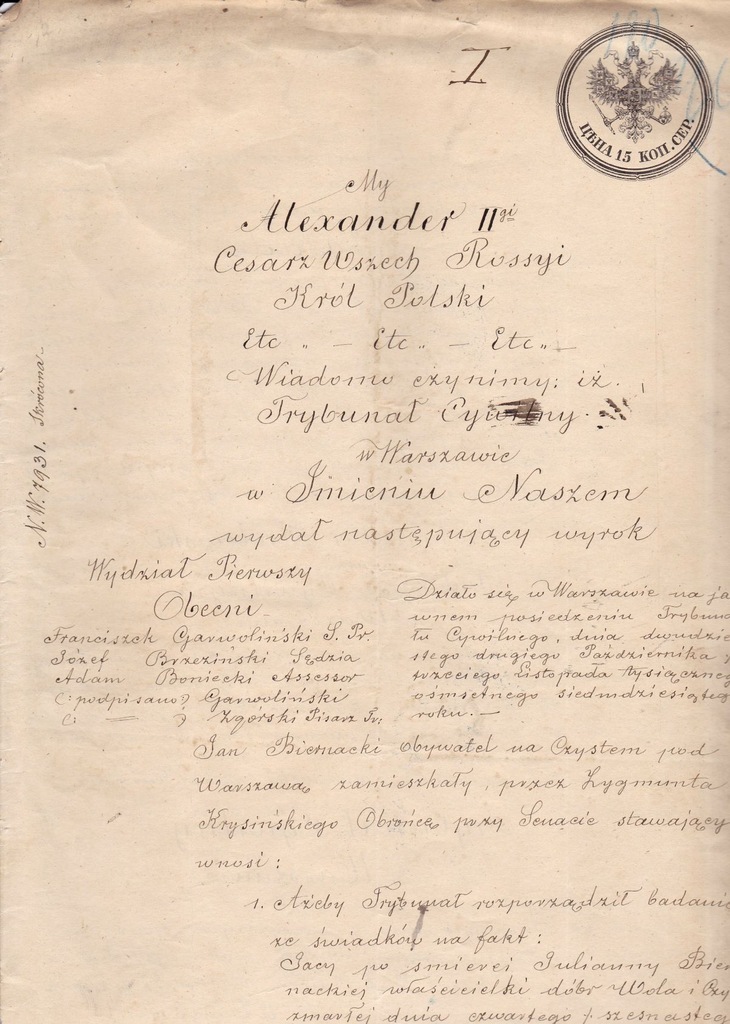 I
ЦѢНА 15 КОП. СЕР.
My
Alexander II gi
Cesarz Wszech Rossyi
Król Polski
Etc „ — Etc „ — Etc „ —
Wiadomo czynimy; iż.
Trybunał Cywilny
w Warszawie
w Imieniu Naszem
wydał następujący wyrok
N. W. 7931. Skrócona
Wydział Pierwszy
Obecni
Franciszek Garwoliński S. Pr.
Józef Brzeziński Sędzia
Adam Boniecki Assessor
(: podpisano) Garwoliński
(: — ) Zgórski Pisarz Tr:
Działo się w Warszawie na ja
wnem posiedzeniu Trybuna
łu Cywilnego, dnia dwudzie
stego drugiego Października /
trzeciego Listopada tysiączneg
ośmsetnego siedmdziesiąteg
roku. —
Jan Biernacki obywatel na Czystem pod
Warszawą zamieszkały, przez Zygmunta
Krysińskiego Obrońcę przy Senacie stawający
wnosi:
1. Ażeby Trybunał rozporządził badanie
ze świadków na fakt:
Jacy po śmierci Julianny Bier
nackiej właścicielki dóbr Wola i Czy
zmarłej dnia czwartego / szesnasteg